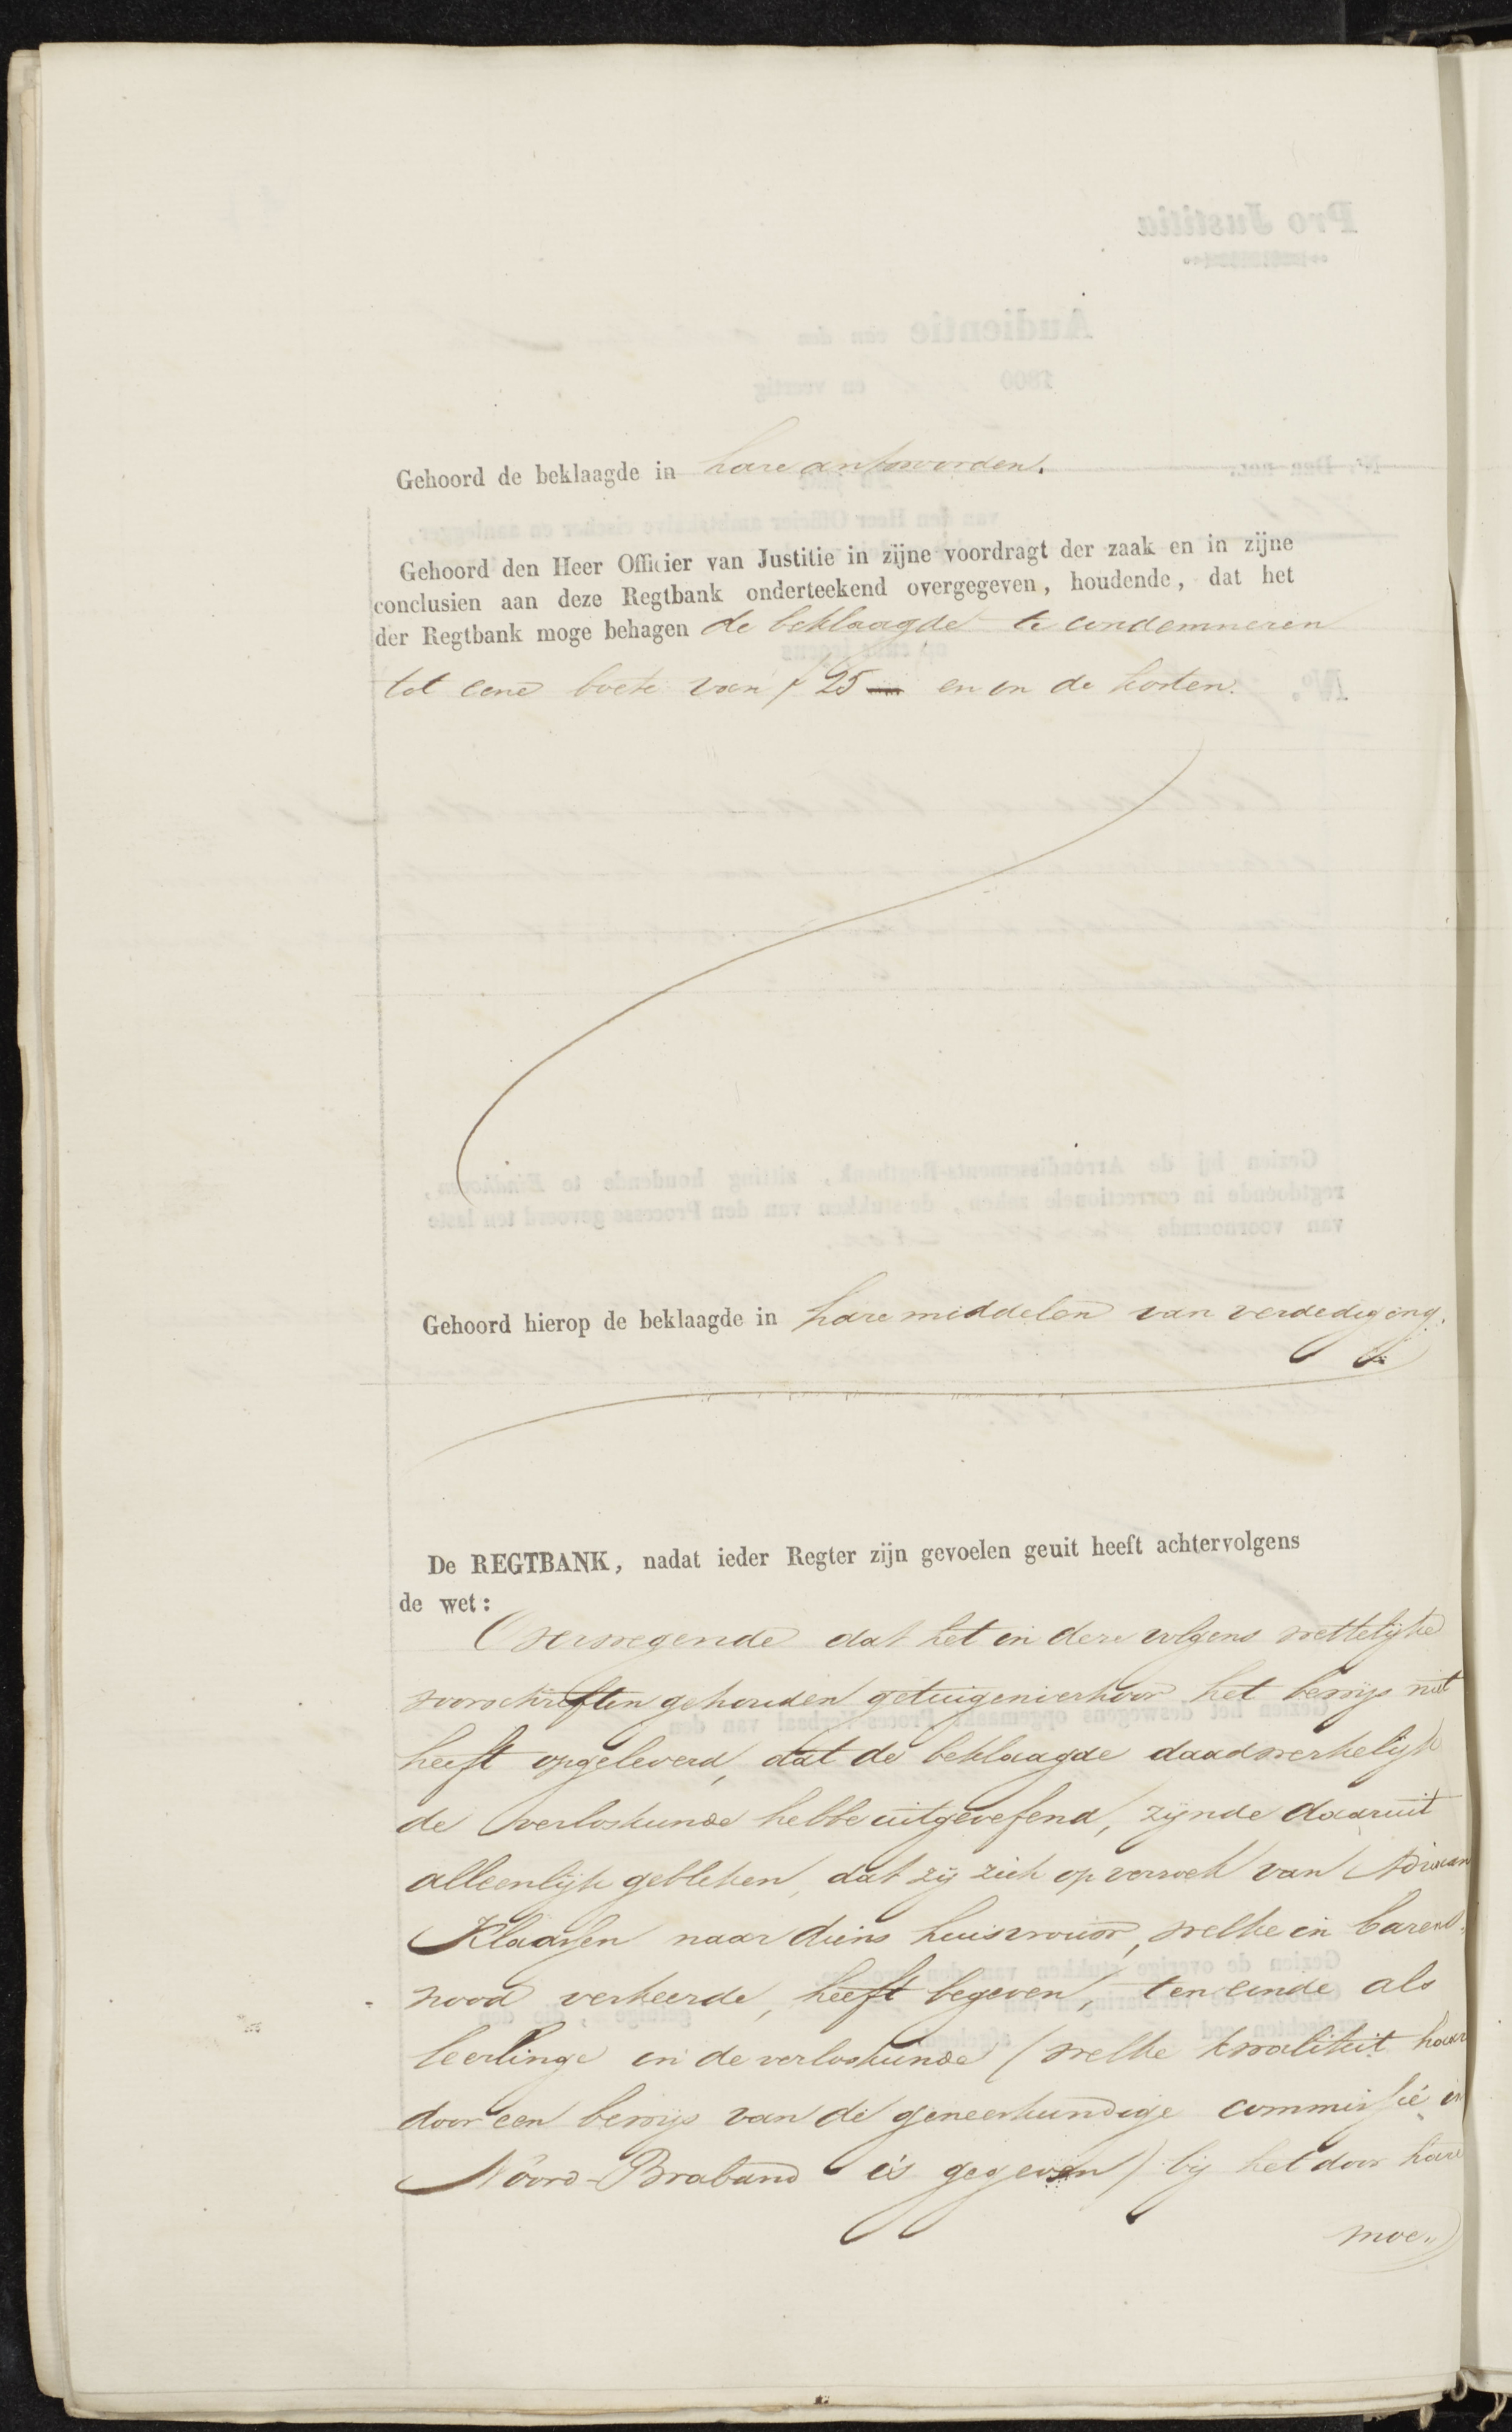 Gehoord de beklaagde in hare antwoorden.
Gehoord den Heer Officier van Justitie in zijne voordragt der zaak en in zijne
conclusien aan deze Regtbank onderteekend overgegeven, houdende, dat het
der Regtbank moge behagen de beklaagde te condemneren
tot eene boete van f 25 — en in de kosten.
Gehoord hierop de beklaagde in hare middelen van verdediging.
De REGTBANK, nadat ieder Regter zijn gevoelen geuit heeft achtervolgens
de wet:
Overwegende dat het in deze volgens wettelijke
voorschriften gehouden getuigenverhoor het bewijs niet
heeft opgeleverd, dat de beklaagde daadwerkelijk
de verloskunde hebbe uitgeoefend, zijnde daaruit
alleenlijk gebleken, dat zij zich op verzoek van Adriaan
Klaassen naar diens huisvrouw, welke in barens-
nood verkeerde, heeft begeven, ten einde als
leerlinge in de verloskunde (welke kwaliteit haar
door een bewijs van de geneeskundige commissie in
Noord-Braband is gegeven) bij het door hare
moe„